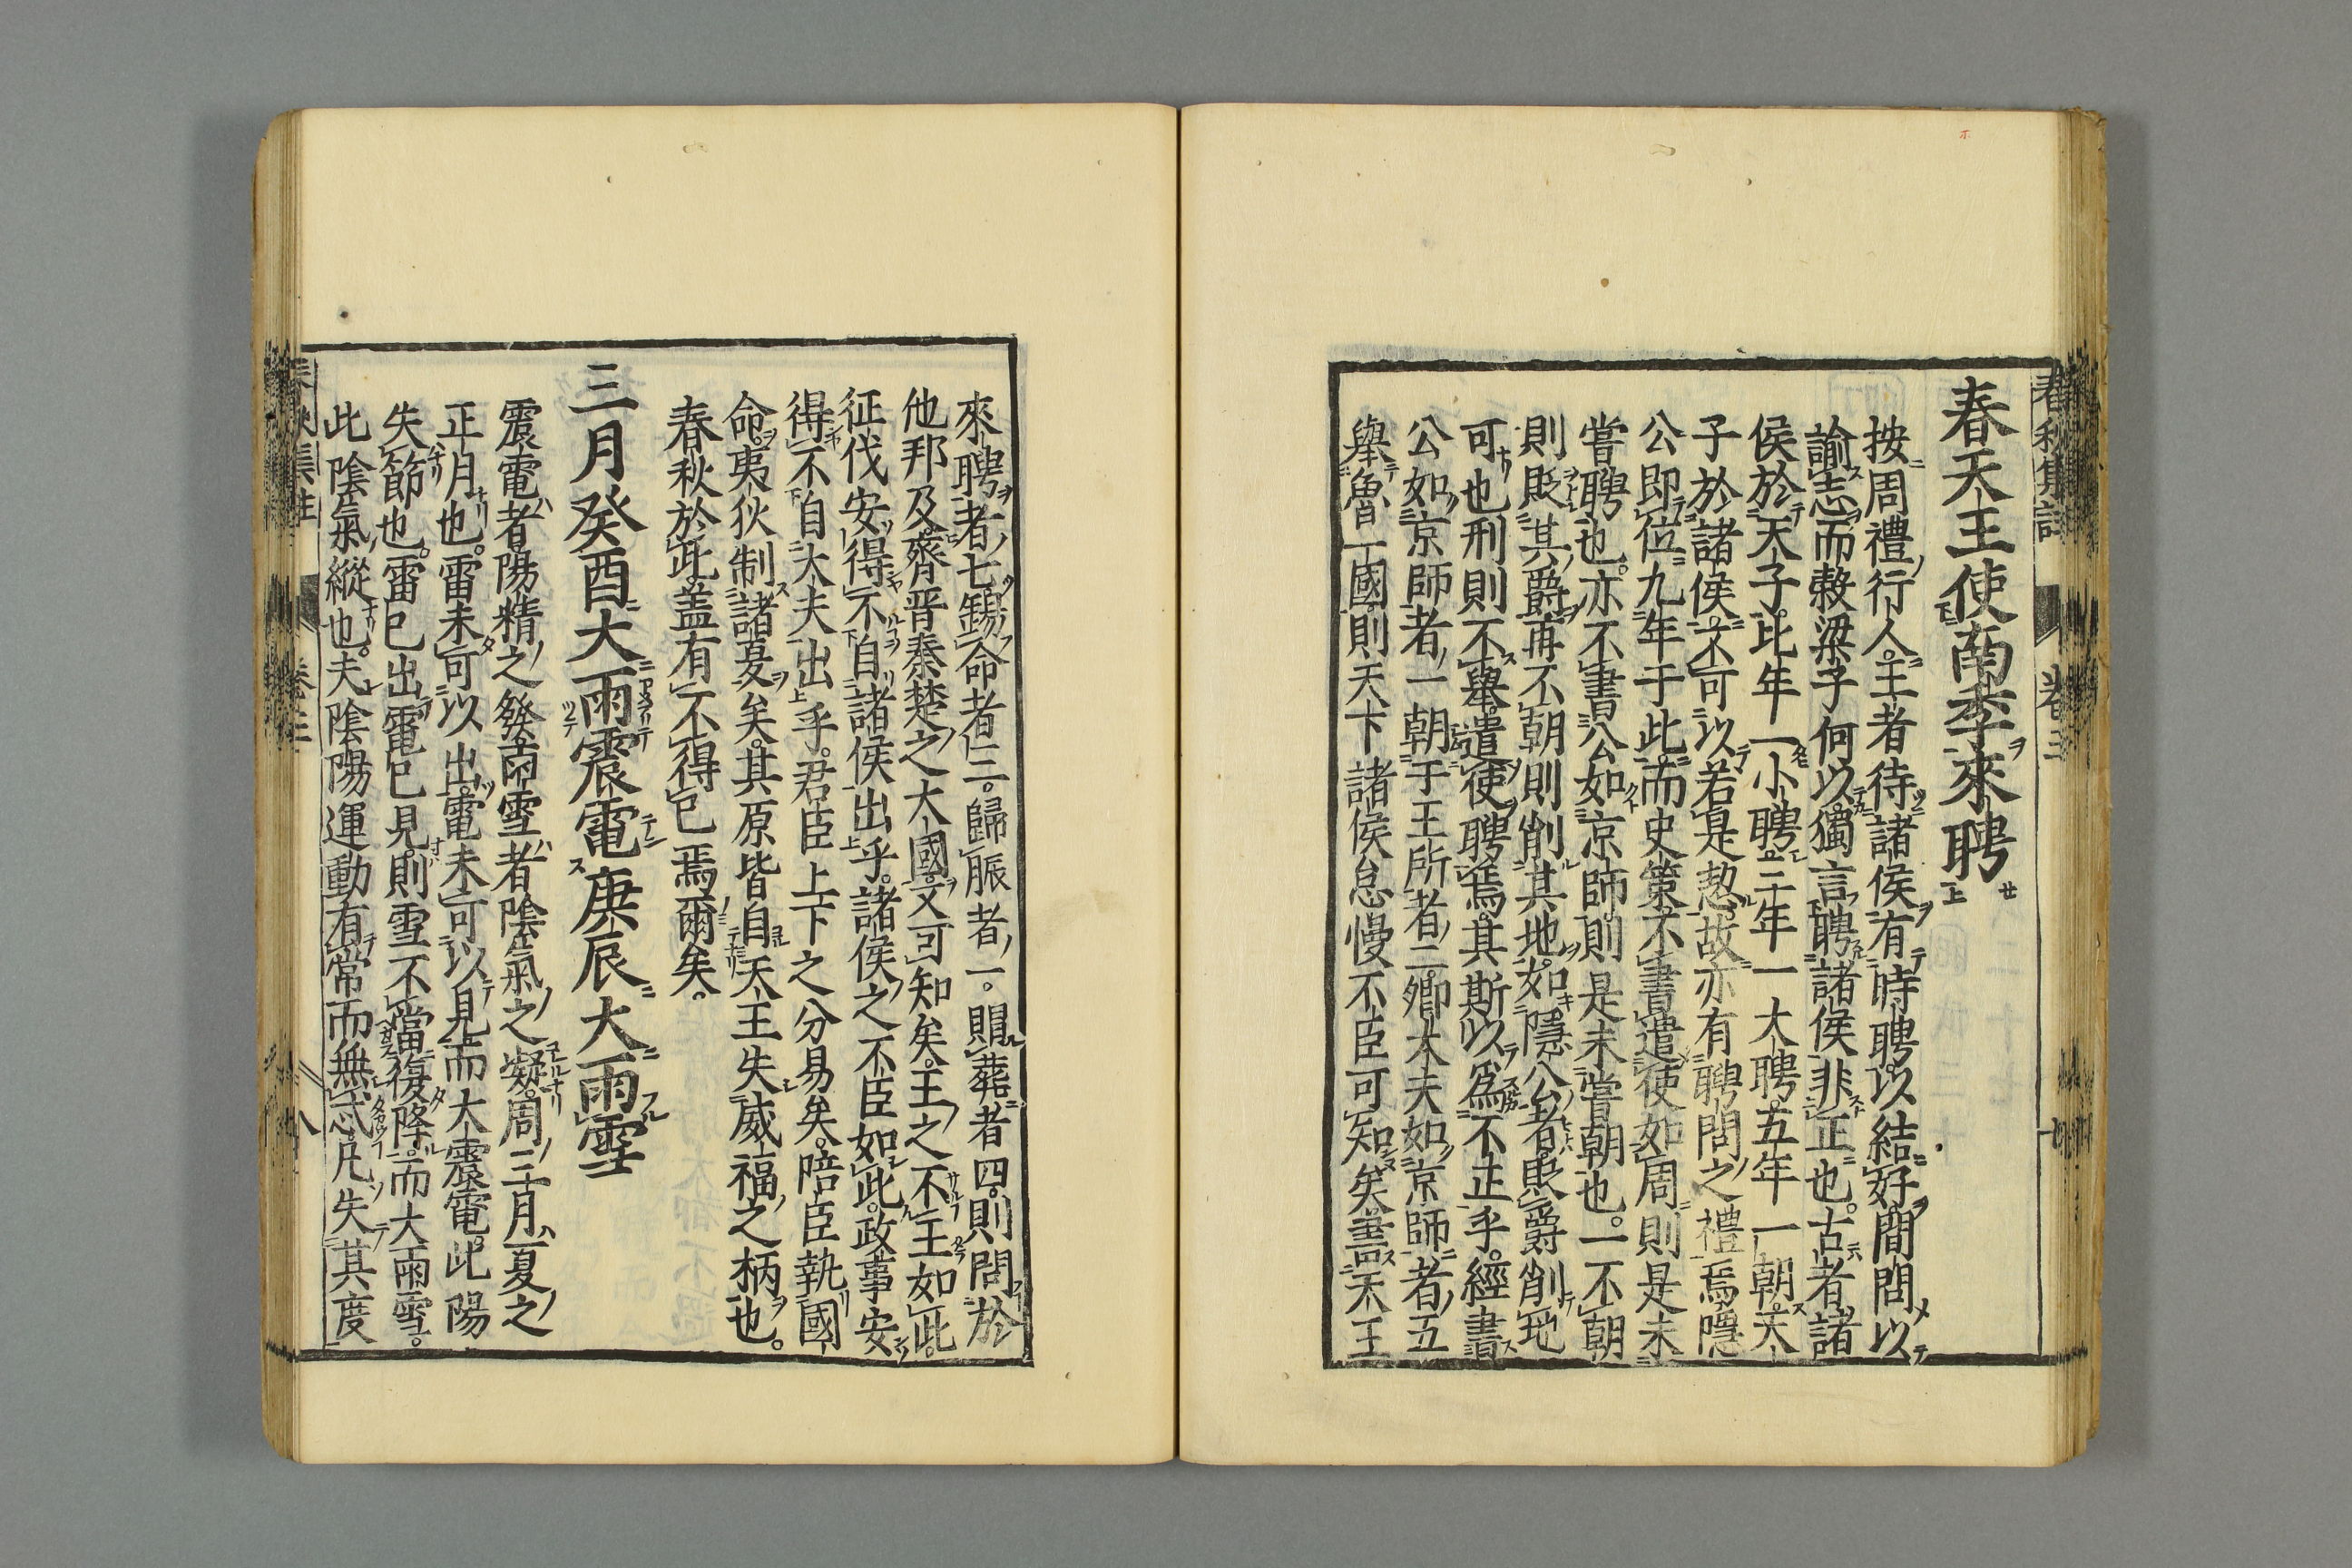 春天王使南季來聘
按周禮行人王者待諸侯有時聘以結好間問以
諭志而穀梁子何以獨言聘諸侯非正也古者諸
侯於天子比年一小聘三年一大聘五年一朝天
子於諸侯不可以若是恝故亦有聘問之禮焉隱
公即位九年于此而史策不書遣使如周則是未
嘗聘也亦不書公如京師則是未嘗朝也一不朝
則貶其爵再不朝則削其地如隱公者貶爵削地
可也刑則不舉遣使聘焉其斯以爲不正乎經書
公如京師者一朝于王所者二卿大夫如京師者五
舉魯一國則天下諸侯怠慢不臣可知矣書天王
來聘者七錫命者三歸脤者一賵葬者四則問於
他邦及齊晋秦楚之大國又可知矣王之不王如此
征伐安得不自諸侯出乎諸侯之不臣如此政事安
得不自大夫出乎君臣上下之分易矣陪臣執國
命夷狄制諸夏矣其原皆自天王失威福之柄也
春秋於此蓋有不得已焉爾矣
三月癸酉大雨震電庚辰大雨雪
震電者陽精之發雨雪者陰氣之凝周三月夏之
正月也雷未可以出電未可以見而大震電此陽
失節也雷已出電已見則雪不當復降而大雨雪
此陰氣縱也夫陰陽運動有常而無忒凡失其度